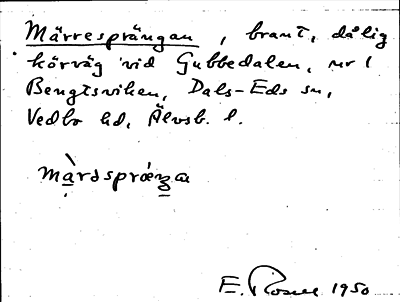 Märresprängan, brant, dålig
körväg vid Gubbedalen, nr 1
Bengtsviken, Dals-Eds sn,
Vedbo hd, Älvsb. l.
E. Rosell 1950